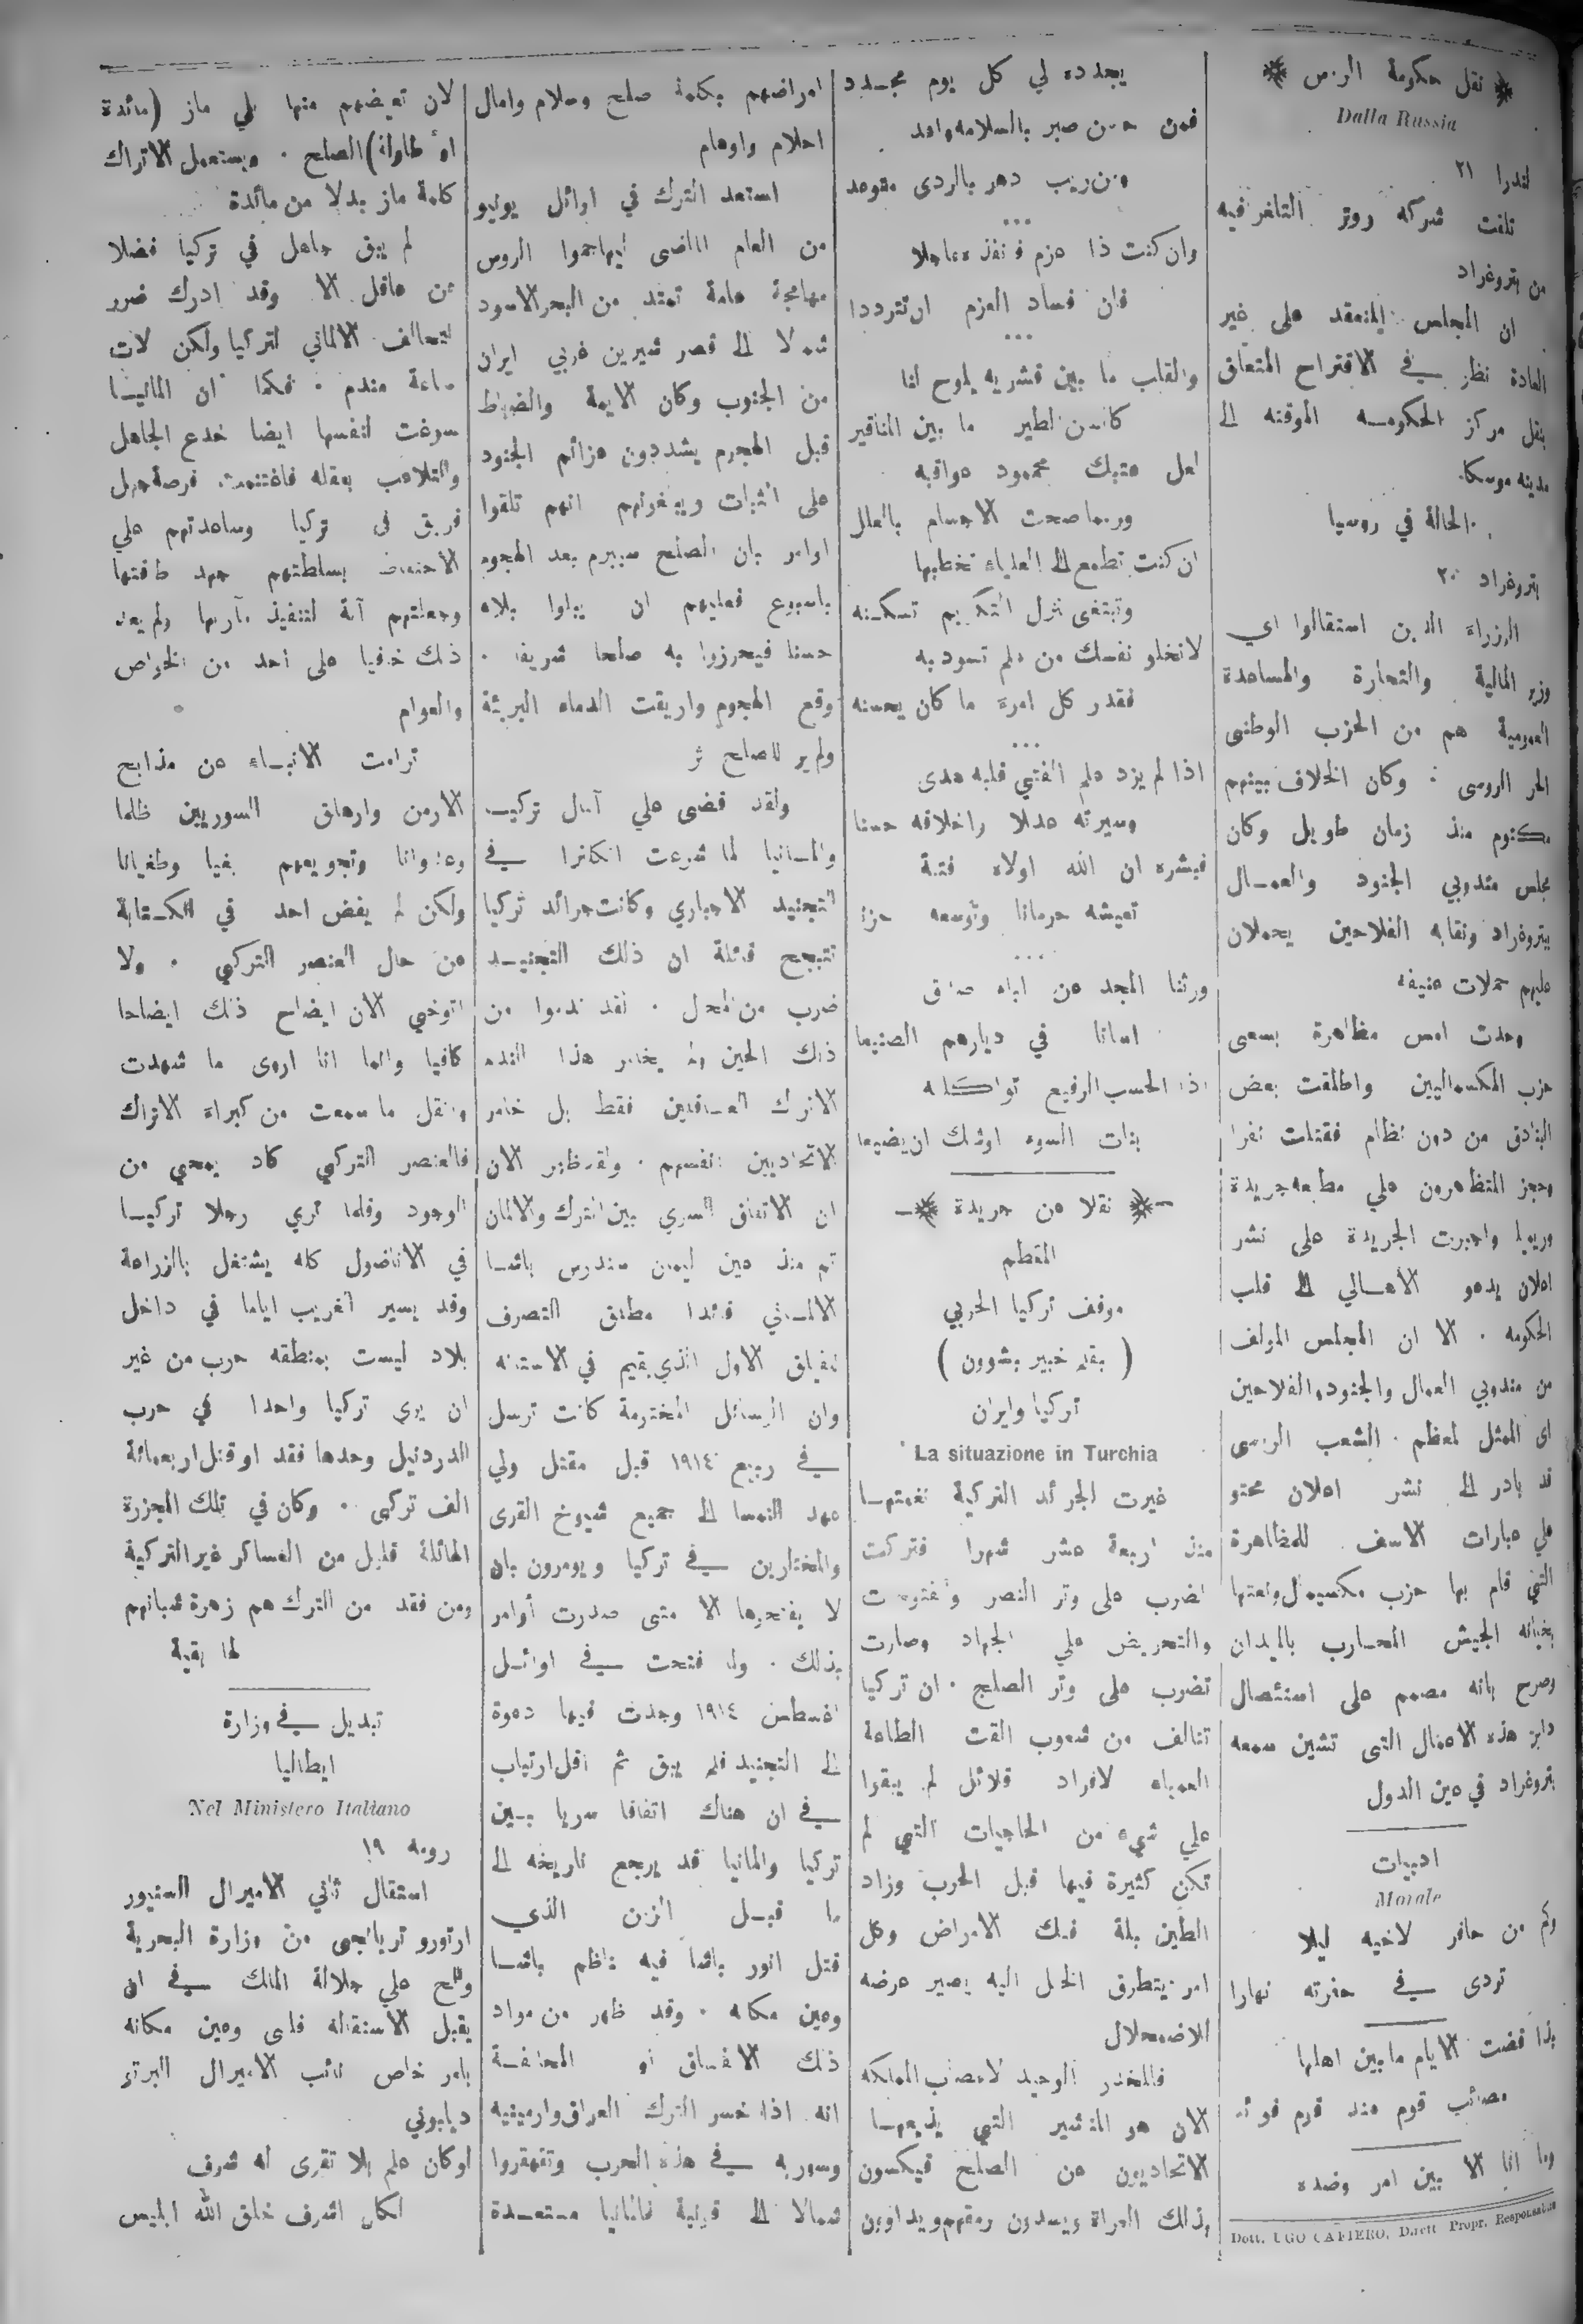 نقل حكومة الروس
Dalla Russia
لندرا ٢١
تلقت شركة روتر التلغرافيه
من بتروغراد
ان المجلس المنعقد على غير
العادة نظر في الاقتراح المتعلق
بنقل مركز الحكومه الموقته الى
مدينه موسكا.
الحالة في روسيا
بتروغراد ٢٠
الوزراء الذين استقالوا اي
وزير المالية والتجارة والمساعدة
العمومية هم من الحزب الوطنى
الحر الروسى . وكان الخلاف بينهم
مكتوم منذ زمان طويل وكان
مجلس مندوبي الجنود والعمال
ببتروغراد ونقابه الفلاحين يحملان
عليهم حملات عنيفه
وحدث امس مظاهرة بسعى
حزب المكسماليين واطلقت بعض
البنادق من دون نظام فقتلت نفرا
وحجز المتظاهرون علي مطبعه جريدة
واجبرت الجريدة على نشر
اعلان يدعو الأهالي الى قلب
الحكومه . الا ان المجلس المولف
من مندوبي العمال والجنود والفلاحين
اى الممثل لمعظم الشعب الروسى
قد بادر الى نشر اعلان محتو
علي عبارات الاسف للمظاهرة
التي قام بها حزب مكسيمال ونعتها
بخيانه الجيش المحارب بالميدان
وصرح بانه مصمم على استئصال
دابر هذه الاعمال التى تشين سمعه
بتروغراد في عين الدول
ادبيات
Morale
وكم من حافر لاخيه ليلا
تردى في حفرته نهارا
بذا قضت الايام ما بين اهلها
مصائب قوم عند قوم فوائد
وما انا الا بين امر وضده
Dott. UGO CAFIERO, Dirett Propr. Responsabile
يجدده لي كل يوم مجدد
فمن حسن صبر بالسلامه واعد
ومن ريب دهر بالردى متوعد
...
وان كنت ذا عزم فانفذه عاجلا
فان فساد العزم ان تترددا
...
والقلب ما بين قشريه يلوح لنا
كالسن لطير ما بين المناقير
لعل عتبك محمود عواقبه
وربما صحت الاجسام بالعلل
ان كنت تطمع الى العلياء تخطبها
وتبتغى نزل التكريم تسكنه
لا تخلو نفسك من علم تسود به
فقدر كل امرء ما كان يحسنه
...
اذا لم يزد علم الفتي قلبه هدى
وسيرته عدلا واخلاقه حسنا
فبشره ان الله اولاه فتنة
تعيشه حرمانا وتوسعه حزنا
...
ورثنا المجد عن اباء صدق
اسانا في ديارهم الصنيعا
اذا الحسب الرفيع تواكلته
بنات السوء اوشك ان يضيعا
نقلا عن جريدة
المقطم
موقف تركيا الحربي
( بقلم خبير بشوون )
تركيا وايران
La situazione in Turchia
غيرت الجرائد التركية نغمتها
منذ اربعة عشر شهرا فتركت
الضرب على وتر النصر والفتوحات
والتحريض علي الجهاد وصارت
تضرب على وتر الصلح . ان تركيا
تتالف من شعوب القت الطاعة
العمياء لافراد قلائل لم يبقوا
علي شيء من الحاجيات التي لم
تكن كثيرة فيها قبل الحرب وزاد
الطين بلة فتك الامراض وكل
امر يتطرق الخلل اليه يصير عرضه
للاضمحلال
فالمخدر الوحيد لاعصاب المملكه
الان هو التبشير التي يذيعها
الاتحاديون عن الصلح فيكسون
بذلك العراة ويسدون رمقهم ويداوون
امراضهم بكلمة صلح وسلام وامال
احلام واوهام
استعد الترك في اوائل يوليو
من العام الماضى ليهاجموا الروس
مهاجمة عامة تمتد من البحر الاسود
شمالا الى قصر شيرين غربي ايران
من الجنوب وكان الايمة والضباط
قبل الهجوم يشددون عزائم الجنود
على الثبات ويبلغونهم انهم تلقوا
اوامر بان الصلح سيبرم بعد الهجوم
باسبوع فعليهم ان يبلوا بلاء
حسنا فيحرزوا به صلحا شريفا .
وقع الهجوم واريقت الدماء البريئة
ولم ير للصلح اثر
ولقد قضى علي آمال تركيا
والمانيا لما شرعت انكلترا في
التجنيد الاجباري وكانت جرائد تركيا
تتبجح قائلة ان ذلك التجنيد
ضرب من المحال . لقد ندموا من
ذلك الحين ولم يخامر هذا الندم
الاتراك العاقلين فقط بل خامر
الاتحاديين انفسهم . ولقد ظهر الان
ان الاتفاق السري بين الترك والالمان
تم منذ عين ليمان سندرس باشا
الالماني قائدا مطلق التصرف
للفيلق الاول الذي يقيم في الاستانه
وان الرسائل المختومة كانت ترسل
في ربيع ١٩١٤ قبل مقتل ولي
عهد النمسا الى جميع شيوخ القرى
والمختارين في تركيا ويومرون بان
لا يفتحوها الا متى صدرت أوامر
بذلك . ولما فتحت في اوائل
اغسطس ١٩١٤ وجدت فيها دعوة
الى التجنيد فلم يبق ثم اقل ارتياب
في ان هناك اتفاقا سريا بين
تركيا والمانيا قد يرجع تاريخه الى
ما قبل الزمن الذي
قتل انور باشا فيه ناظم باشا
وعين مكانه . وقد ظهر من مواد
ذلك الاتفاق او المحالفة
انه اذا خسر الترك العراق وارمينيه
وسوريه في هذه الحرب وتقهقروا
شمالا الى قونية فالمانيا مستعدة
لان تعوضهم منها علي ماز (مائدة
او طاولة) الصلح . ويستعمل الاتراك
كلمة ماز بدلا من مائدة
لم يبق جاهل في تركيا فضلا
عن عاقل الا وقد ادرك ضرر
التحالف الالماني لتركيا ولكن لات
ساعة مندم . فكما ان المانيا
سوغت لنفسها ايضا خدع الجاهل
والتلاعب بعقله فاغتنمت فرصة جهل
فريق فى تركيا وساعدتهم علي
الاحتفاظ بسلطتهم جهد طاقتها
وجعلتهم آلة لتنفيذ مآربها ولم يعد
ذلك خافيا على احد من الخواص
والعوام
ترامت الانباء عن مذابح
الارمن وارهاق السوريين ظلما
وعدوانا وتجويعهم بغيا وطغيانا
ولكن لم يفض احد في الكتابة
عن حال العنصر التركي . ولا
اتوخي الان ايضاح ذلك ايضاحا
كافيا وانما انا اروى ما شهدت
وانقل ما سمعت من كبراء الاتراك
فالعنصر التركي كاد يمحي من
الوجود وقلما تري رجلا تركيا
في الاناضول كله يشتغل بالزراعة
وقد يسير الغريب اياما في داخل
بلاد ليست بمنطقه حرب من غير
ان يرى تركيا واحدا في حرب
الدردنيل وحدها فقد او قتل اربعمائة
الف تركى . وكان في تلك المجزرة
الهائلة قليل من العساكر غير التركية
ومن فقد من الترك هم زهرة شبانهم
لها بقية
تبديل في وزارة
ايطاليا
Nel Ministero Italiano
رومه ١٩
استقال ثاني الاميرال السنيور
ارتورو تريانجى من وزارة البحرية
والح علي جلالة الملك في ان
يقبل الاستقاله فلبى وعين مكانه
بامر خاص نائب الاميرال البرتو
ديلبونى
لو كان علم بلا تقوى له شرف
لكان اشرف خلق الله ابليس